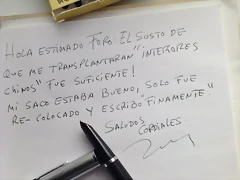 HOLA ESTIMADO FORO: EL SUSTO DE
QUE ME TRANSPLANTARAN "INTERIORES
CHINOS" FUE SUFICIENTE!
MI SACO ESTABA BUENO, SOLO FUE
RE-COLOCADO Y ESCRIBO "FINAMENTE"
SALUDOS
CORDIALES